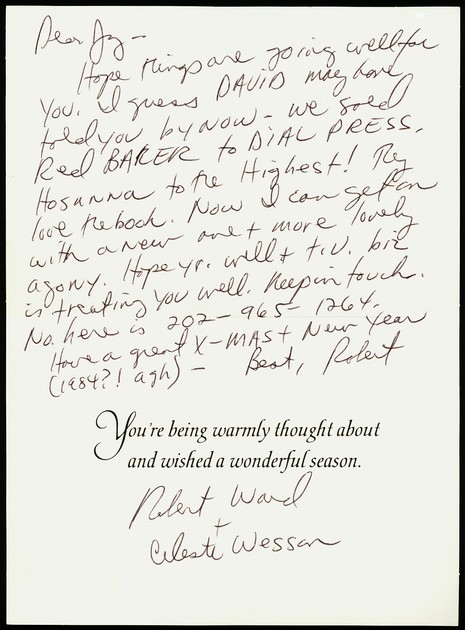 Dear Jay –
Hope things are going well for
you. I guess DAVID may have
told you by now – we sold
Red BAKER to DIAL PRESS.
Hosanna to the Highest! They
love the book. Now I can get on
with a new one + more lovely
agony. Hope yr. well + t.v. biz
is treating you well. Keep in touch.
No. here is 202–965–1264.
Have a great X-MAS + New Year
(1984?! agh) – Best, Robert
You're being warmly thought about
and wished a wonderful season.
Robert Ward
+
Celeste Wesson